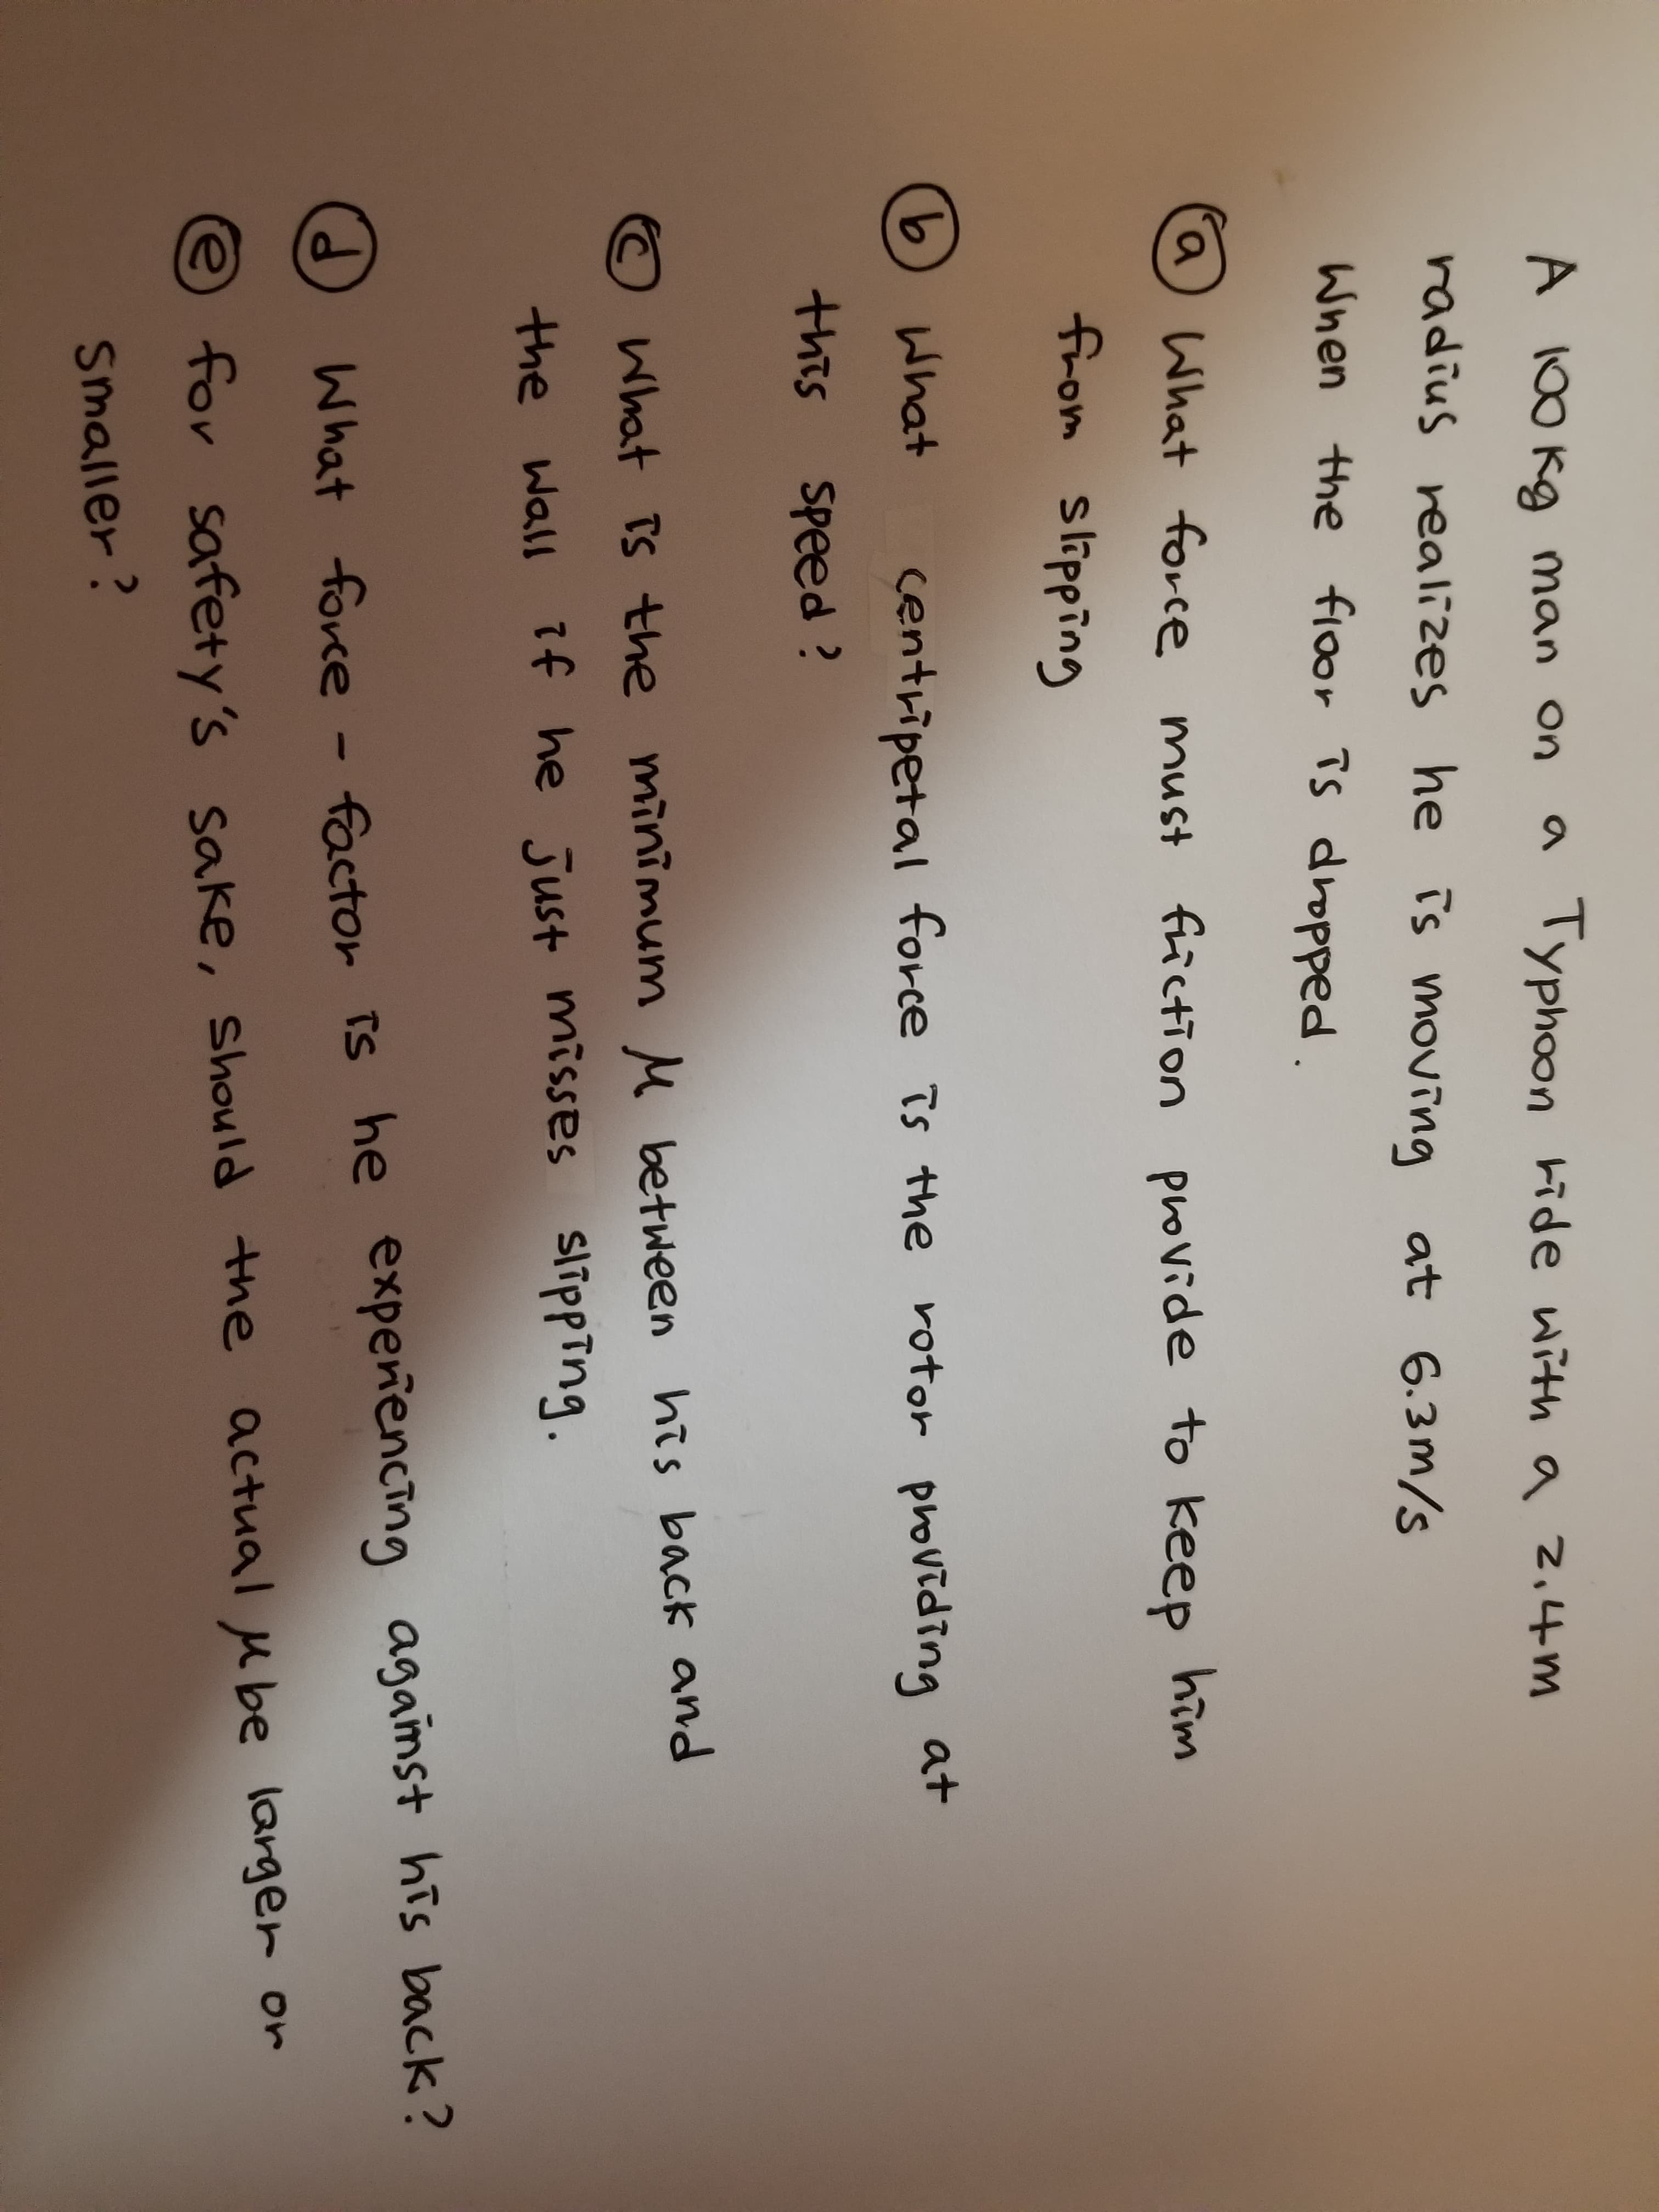 A 100kg man on a Typhoon ride with a 2.4m
radius realizes he is moving at 6.3m/s
When the floor is dropped.
(a) What force must friction provide to keep him
from slipping
(b) What centripetal force is the rotor providing at
this speed?
(c) What is the minimum μ between his back and
the wall if he just misses slipping.
(d) What force-factor is he experiencing against his back?
(e) for safety's sake, should the actual μ be larger or
smaller?